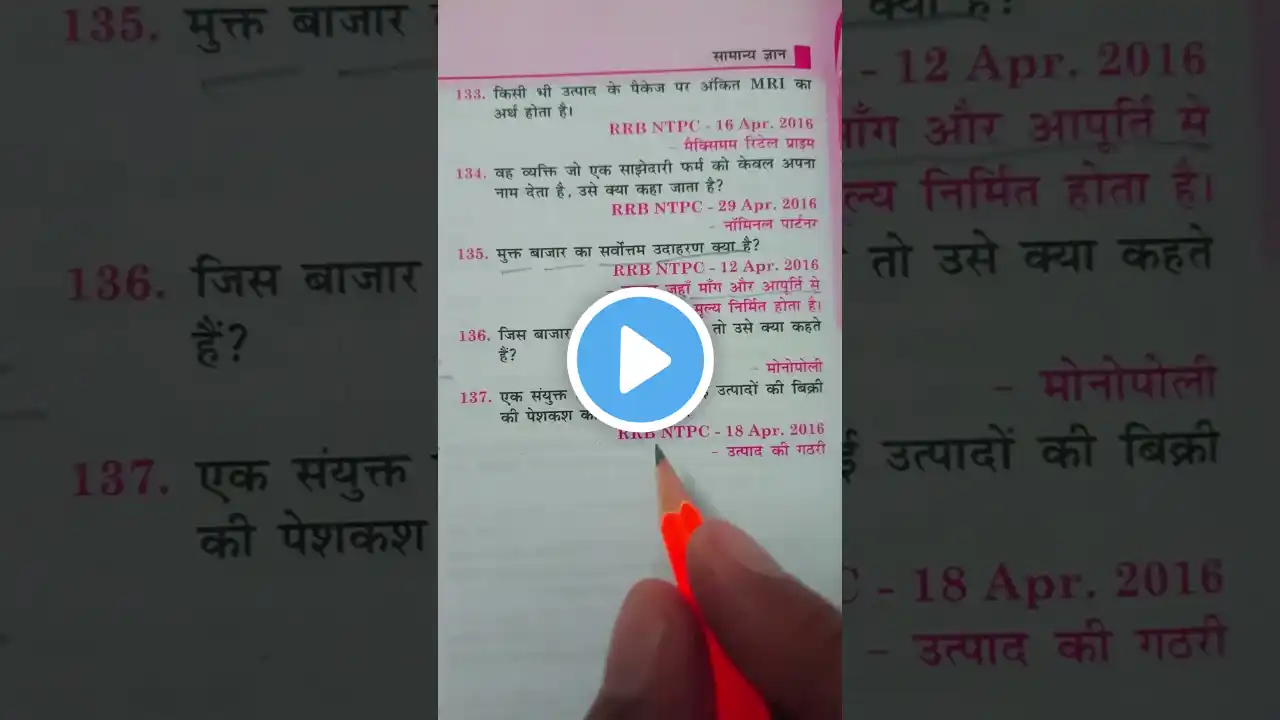 सामान्य ज्ञान
133. किसी भी उत्पाद के पैकेज पर अंकित MRI का
अर्थ होता है।
RRB NTPC - 16 Apr. 2016
- मैक्सिमम रिटेल प्राइम
134. वह व्यक्ति जो एक साझेदारी फर्म को केवल अपना
नाम देता है, उसे क्या कहा जाता है?
RRB NTPC - 29 Apr. 2016
- नॉमिनल पार्टनर
135. मुक्त बाजार का सर्वोत्तम उदाहरण क्या है?
RRB NTPC - 12 Apr. 2016
जहाँ माँग और आपूर्ति मे
मूल्य निर्मित होता है।
136. जिस बाजार तो उसे क्या कहते
हैं?
- मोनोपोली
137. एक संयुक्त उत्पादों की बिक्री
की पेशकश
RRB NTPC - 18 Apr. 2016
- उत्पाद की गठरी
135. मुक्त बाजार
136. जिस बाजार
हैं?
137. एक संयुक्त
की पेशकश
क्या है?
- 12 Apr. 2016
माँग और आपूर्ति मे
मूल्य निर्मित होता है।
तो उसे क्या कहते
- मोनोपोली
उत्पादों की बिक्री
- 18 Apr. 2016
- उत्पाद की गठरी